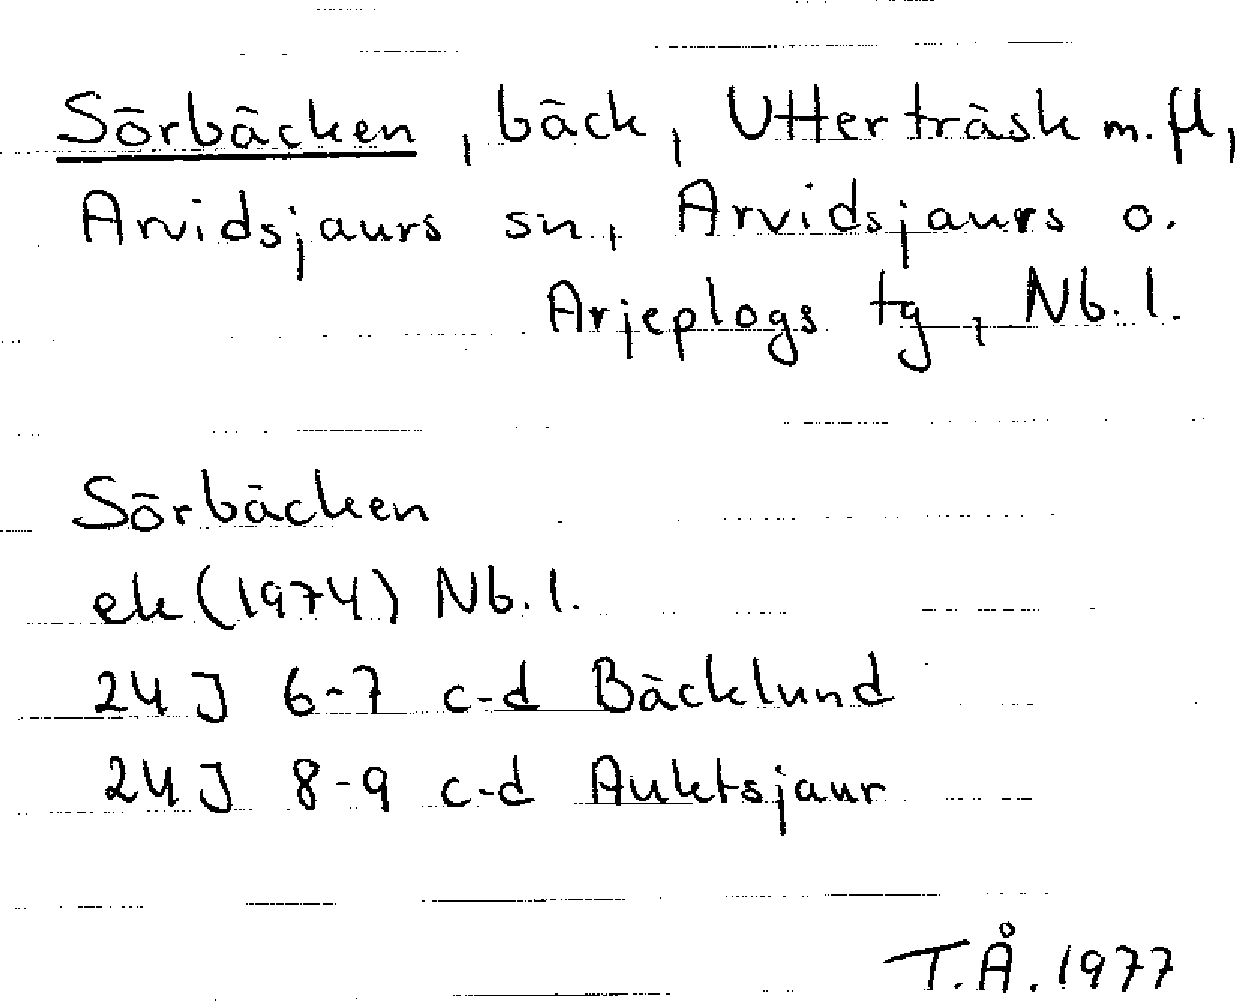 Sörbäcken, bäck, Utterträsk m.fl,
Arvidsjaurs sn, Arvidsjaurs o.
Arjeplogs tg, Nb.l.
Sörbäcken
ek (1974) Nb.l.
24J 6-7 c-d Bäcklund
24J 8-9 c-d Auktsjaur
T.Å. 1977